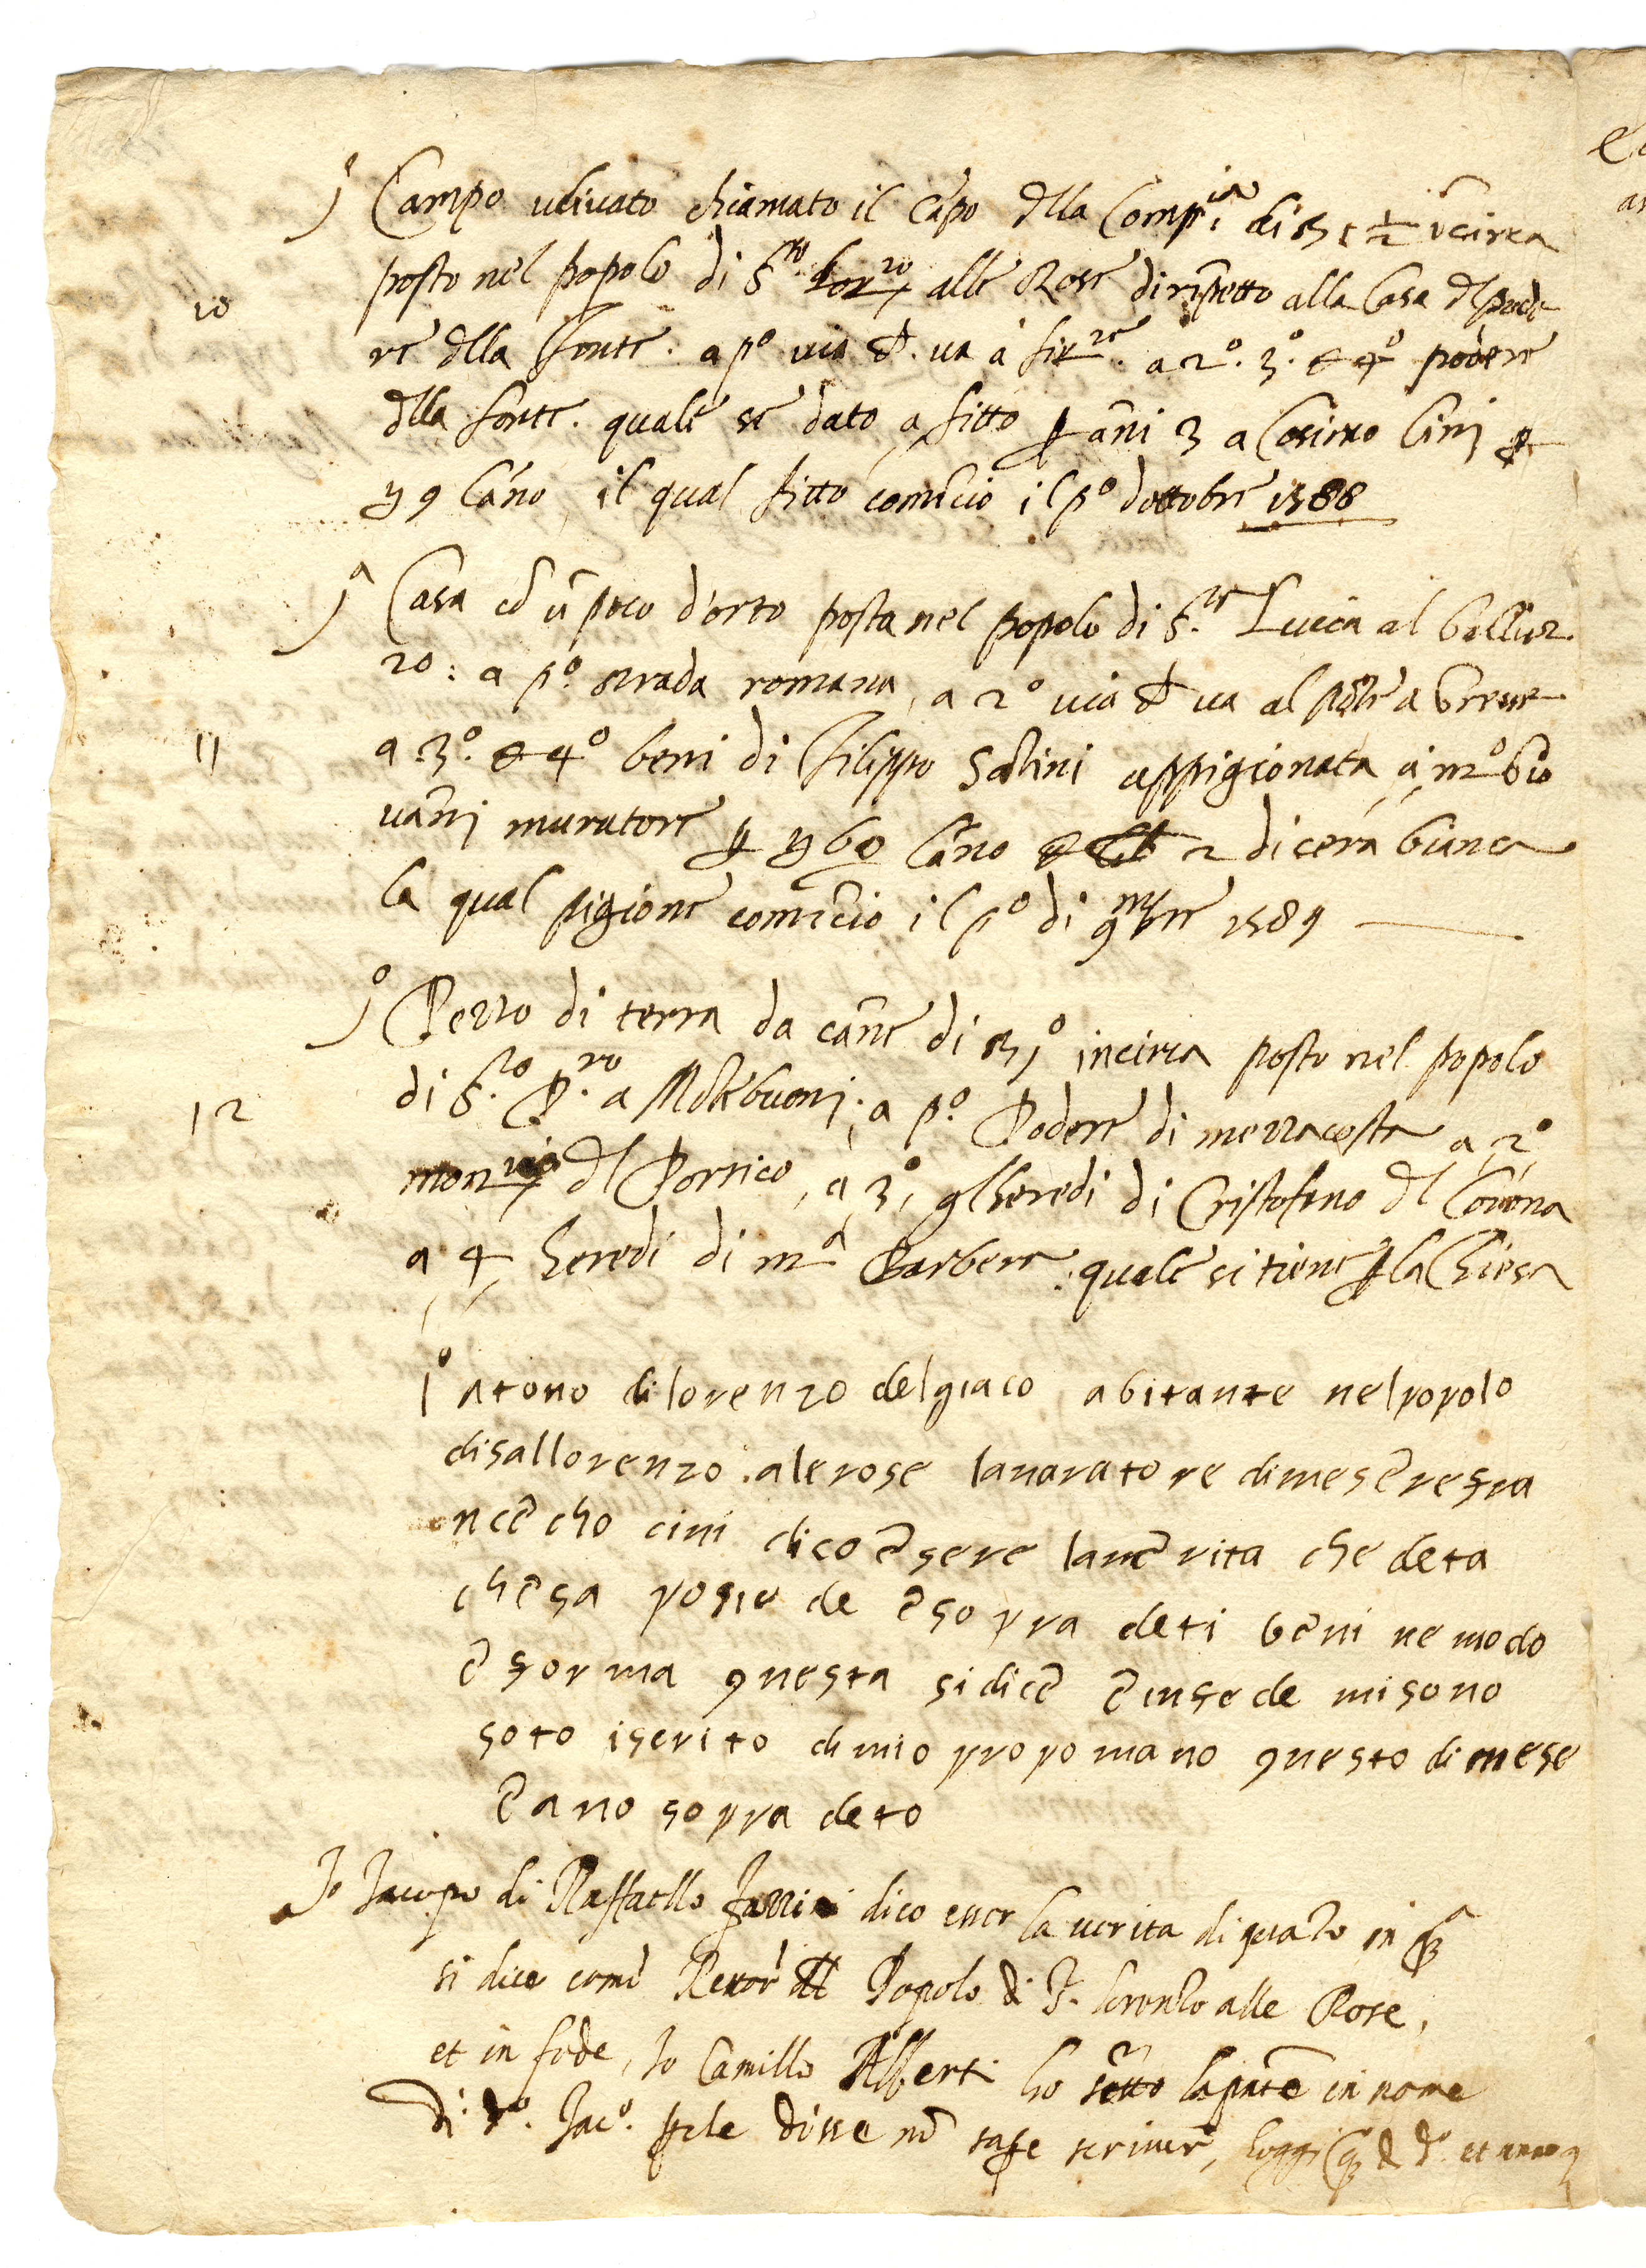 j° Campo uliuato chiamato il Cāpo dlla Comp.ia di st 1 1/2 īcirca
posto nel popolo di S.to Lor.zo alle Rose dirīpetto alla Casa dl pode
10
re dlla Fonte. a p° uia ch. ua a fir.ze. a 2°. 3°. et 4° podere
dlla fonte. quale se dato a fitto p āni 3 a Cosimo Cini p
9 lāno, il qual fitto comīcio il p° dottobre 1588
j^a Casa cō ū poco d'orto posta nel popolo di S.ta Lucia al Galluz
zo: a p°. strada romana, a 2° uia ch ua al pōte a Greue
11
a 3°. et 4° beni di Filippo Saluini appigionata à m° Gio
uānj muratore p lāno et 2 di cera bianca
la qual pigione comīcio il p° di 9mbre 1589
j° Pezzo di terra da cāne di st j° incirca posto nel popolo
di S.to P.ro a Mōtebuonj; a p°. Podere di mezzacosta a 2°
12
dl Portico, a 3, glheredi di Cristofano dl Corona
a 4 heredi di m^a Barbera. quale si tiene p la Chiesa
I° Atono dilorenzo delgiaco abitante nelpopolo
disallorenzo . alerose lauoratore dimesere fra
ncecho cini dico esere lauerita che deta
chesa posie de esopra deti beni ne modo
e forma questa sidice e infede misono
soto iscrito dimio propomano questo dimese
e ano sopra deto
Io Iacopo di Raffaello dico esser la uerita di quāto in q^a
si dice come Rettor dl Popolo di S. Lorenzo alle Rose,
et in fede, Io Camillo Alberti ho sc̄tto la pn̄te in nome
di d°. Iac°. p che disse nō sape scriuer, hoggi q° dì d°. et anno